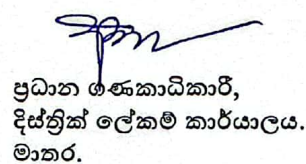 ප්‍රධාන ගණකාධිකාරී,
දිස්ත්‍රික් ලේකම් කාර්යාලය.
මාතර.